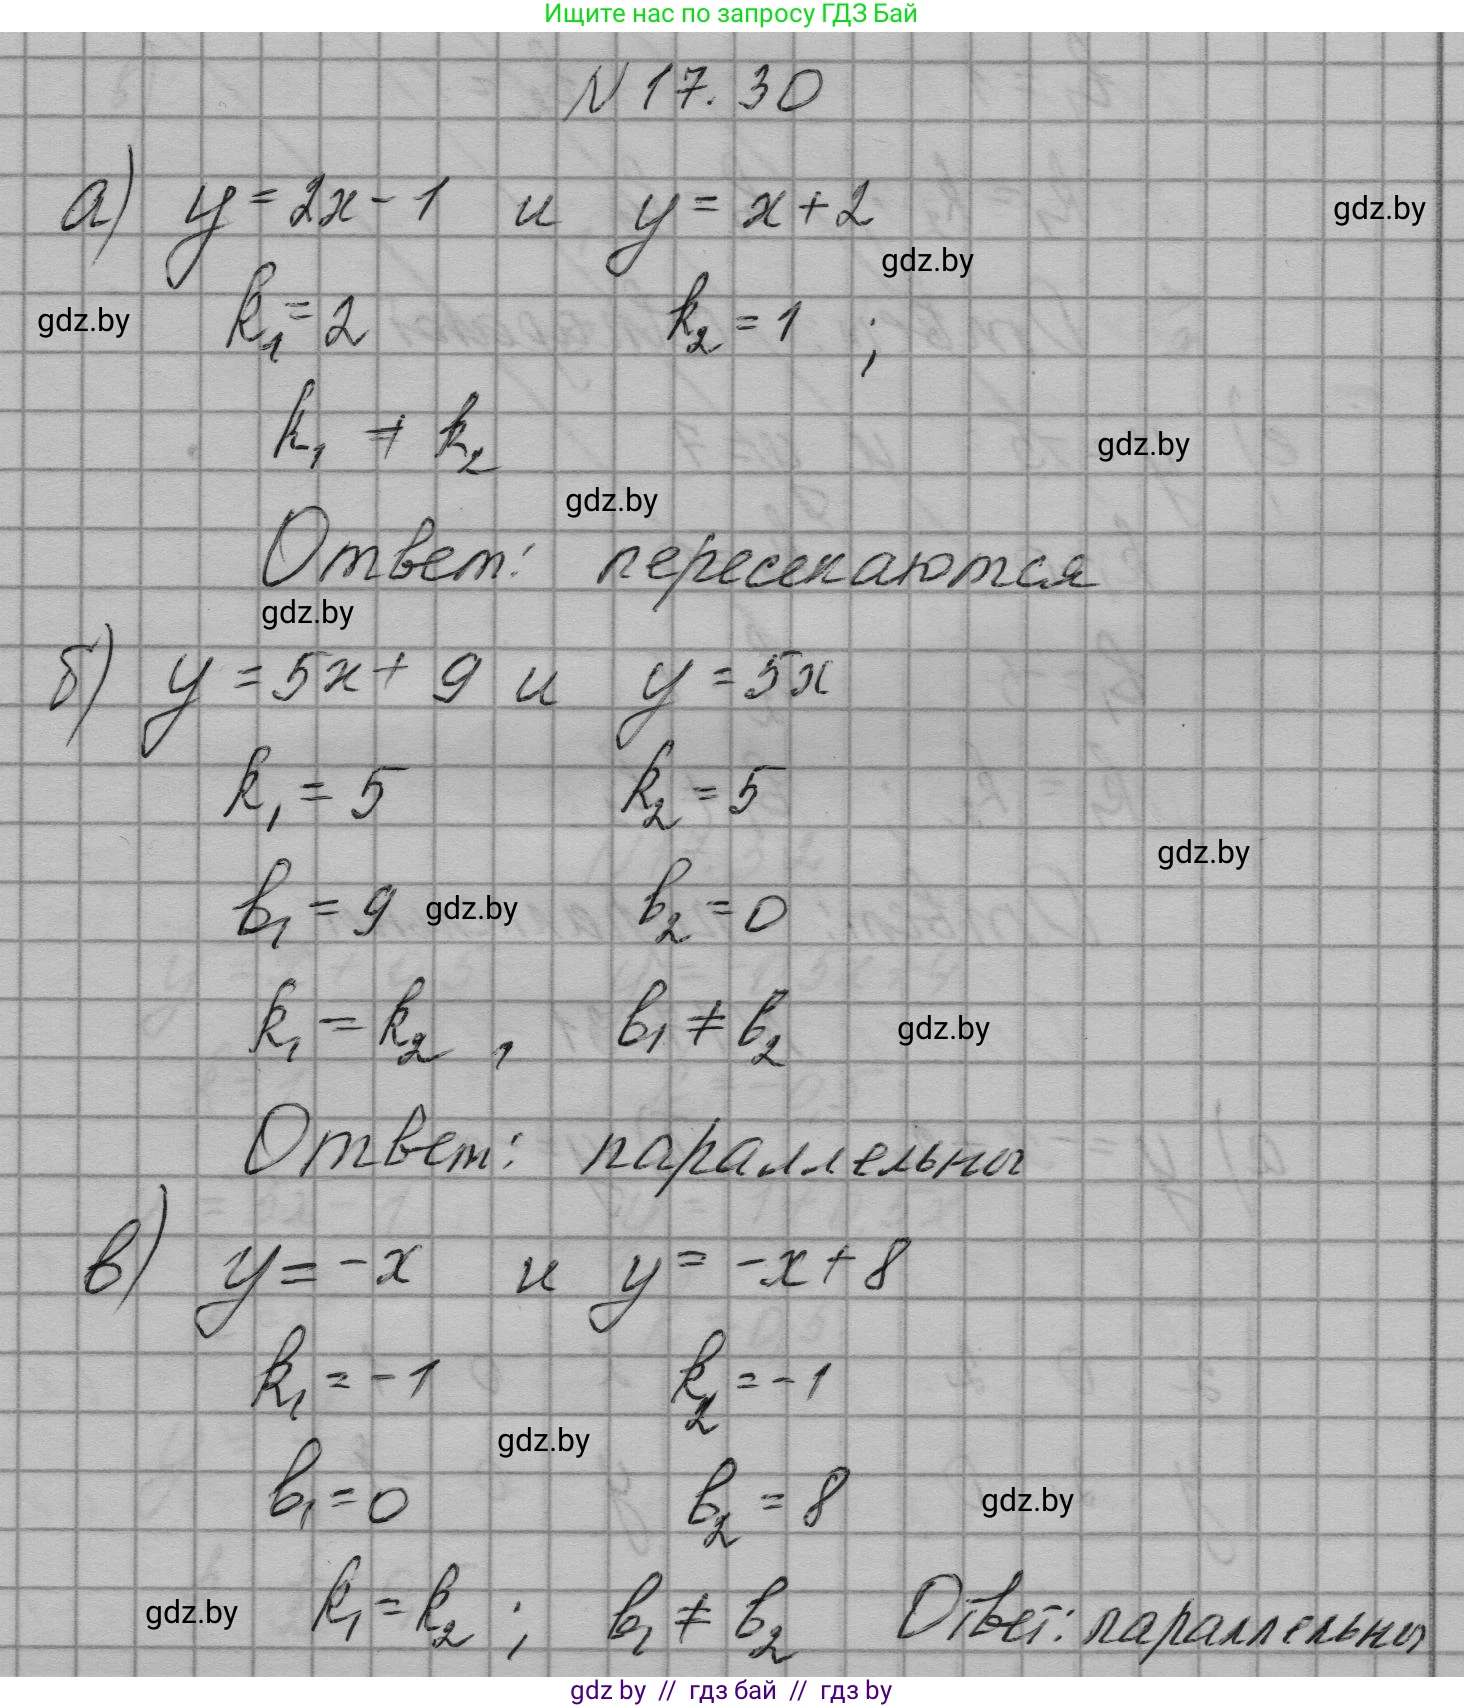 Ищите нас по запросу ГДЗ Бай
N 17.30
а) y = 2x - 1 и y = x + 2
gdz.by
gdz.by
gdz.by
k₁ = 2 k₂ = 1 ;
k₁ ≠ k₂
gdz.by
gdz.by
Ответ: пересекаются
gdz.by
б) y = 5x + 9 и y = 5x
k₁ = 5 k₂ = 5
gdz.by
b₁ = 9 gdz.by b₂ = 0
k₁ = k₂ , b₁ ≠ b₂ gdz.by
Ответ: параллельны
в) y = -x и y = -x + 8
k₁ = -1 k₂ = -1
gdz.by
b₁ = 0 b₂ = 8 gdz.by
gdz.by k₁ = k₂ ; b₁ ≠ b₂ Ответ: параллельны
gdz by // гдз бай // гдз by